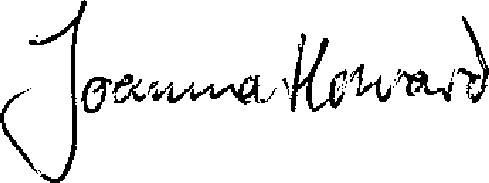 Joanna Howard